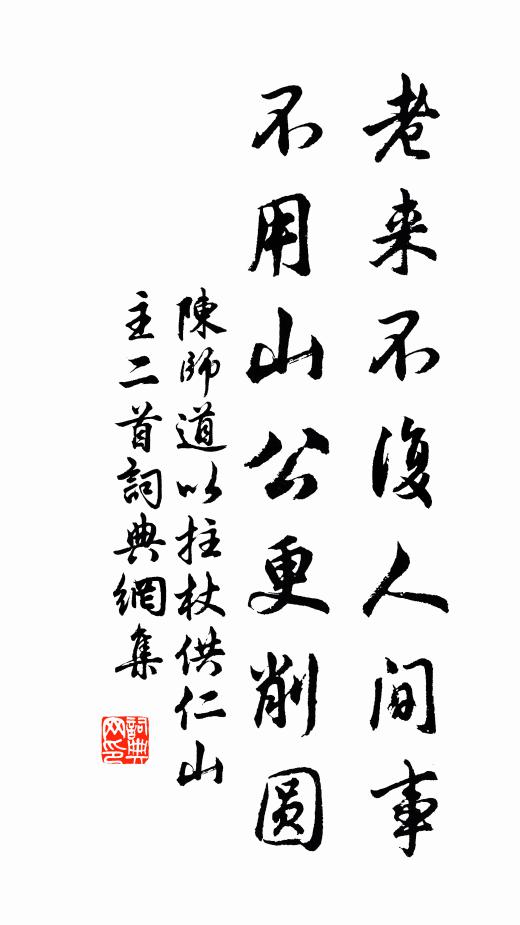 老来不復人间事
不用山公更削圆
陳師道以拄杖供仁山
主二首詞典網集
詞典
网印